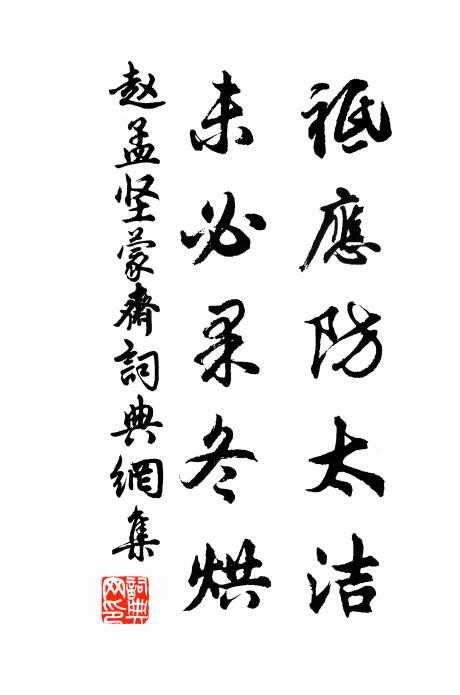 祗應防太洁
未必果冬烘
赵孟坚蒙齋詞典網集
詞典網印